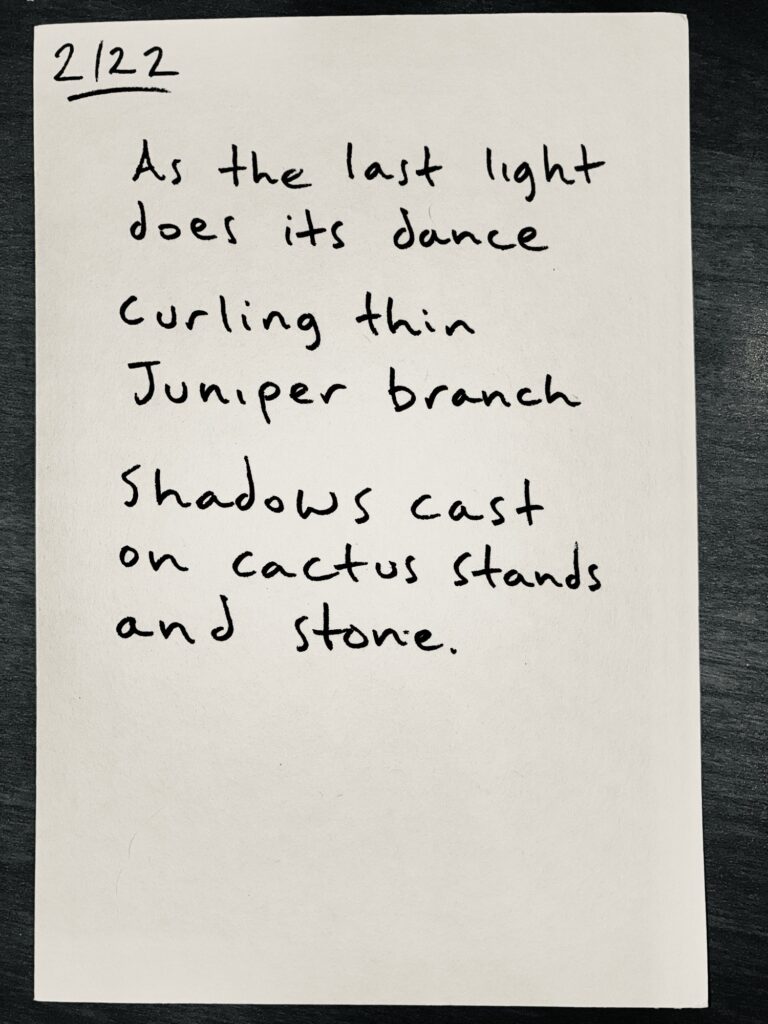 2/22
As the last light
does its dance
Curling thin
Juniper branch
Shadows cast
on cactus stands
and stone.